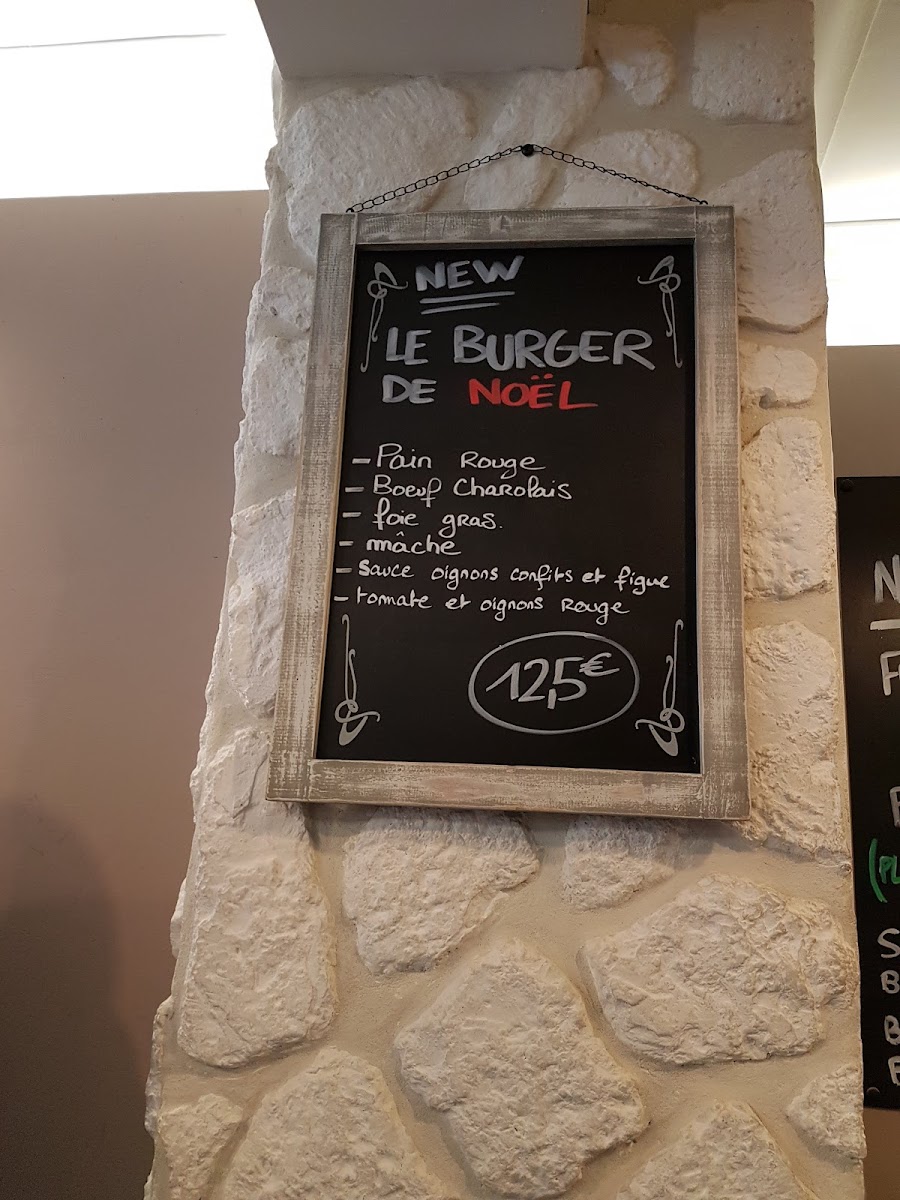 NEW
LE BURGER
DE NOËL
- Pain Rouge
- Boeuf Charolais
- foie gras.
- mâche
- sauce oignons confits et figue
- tomate et oignons Rouge
12,5€